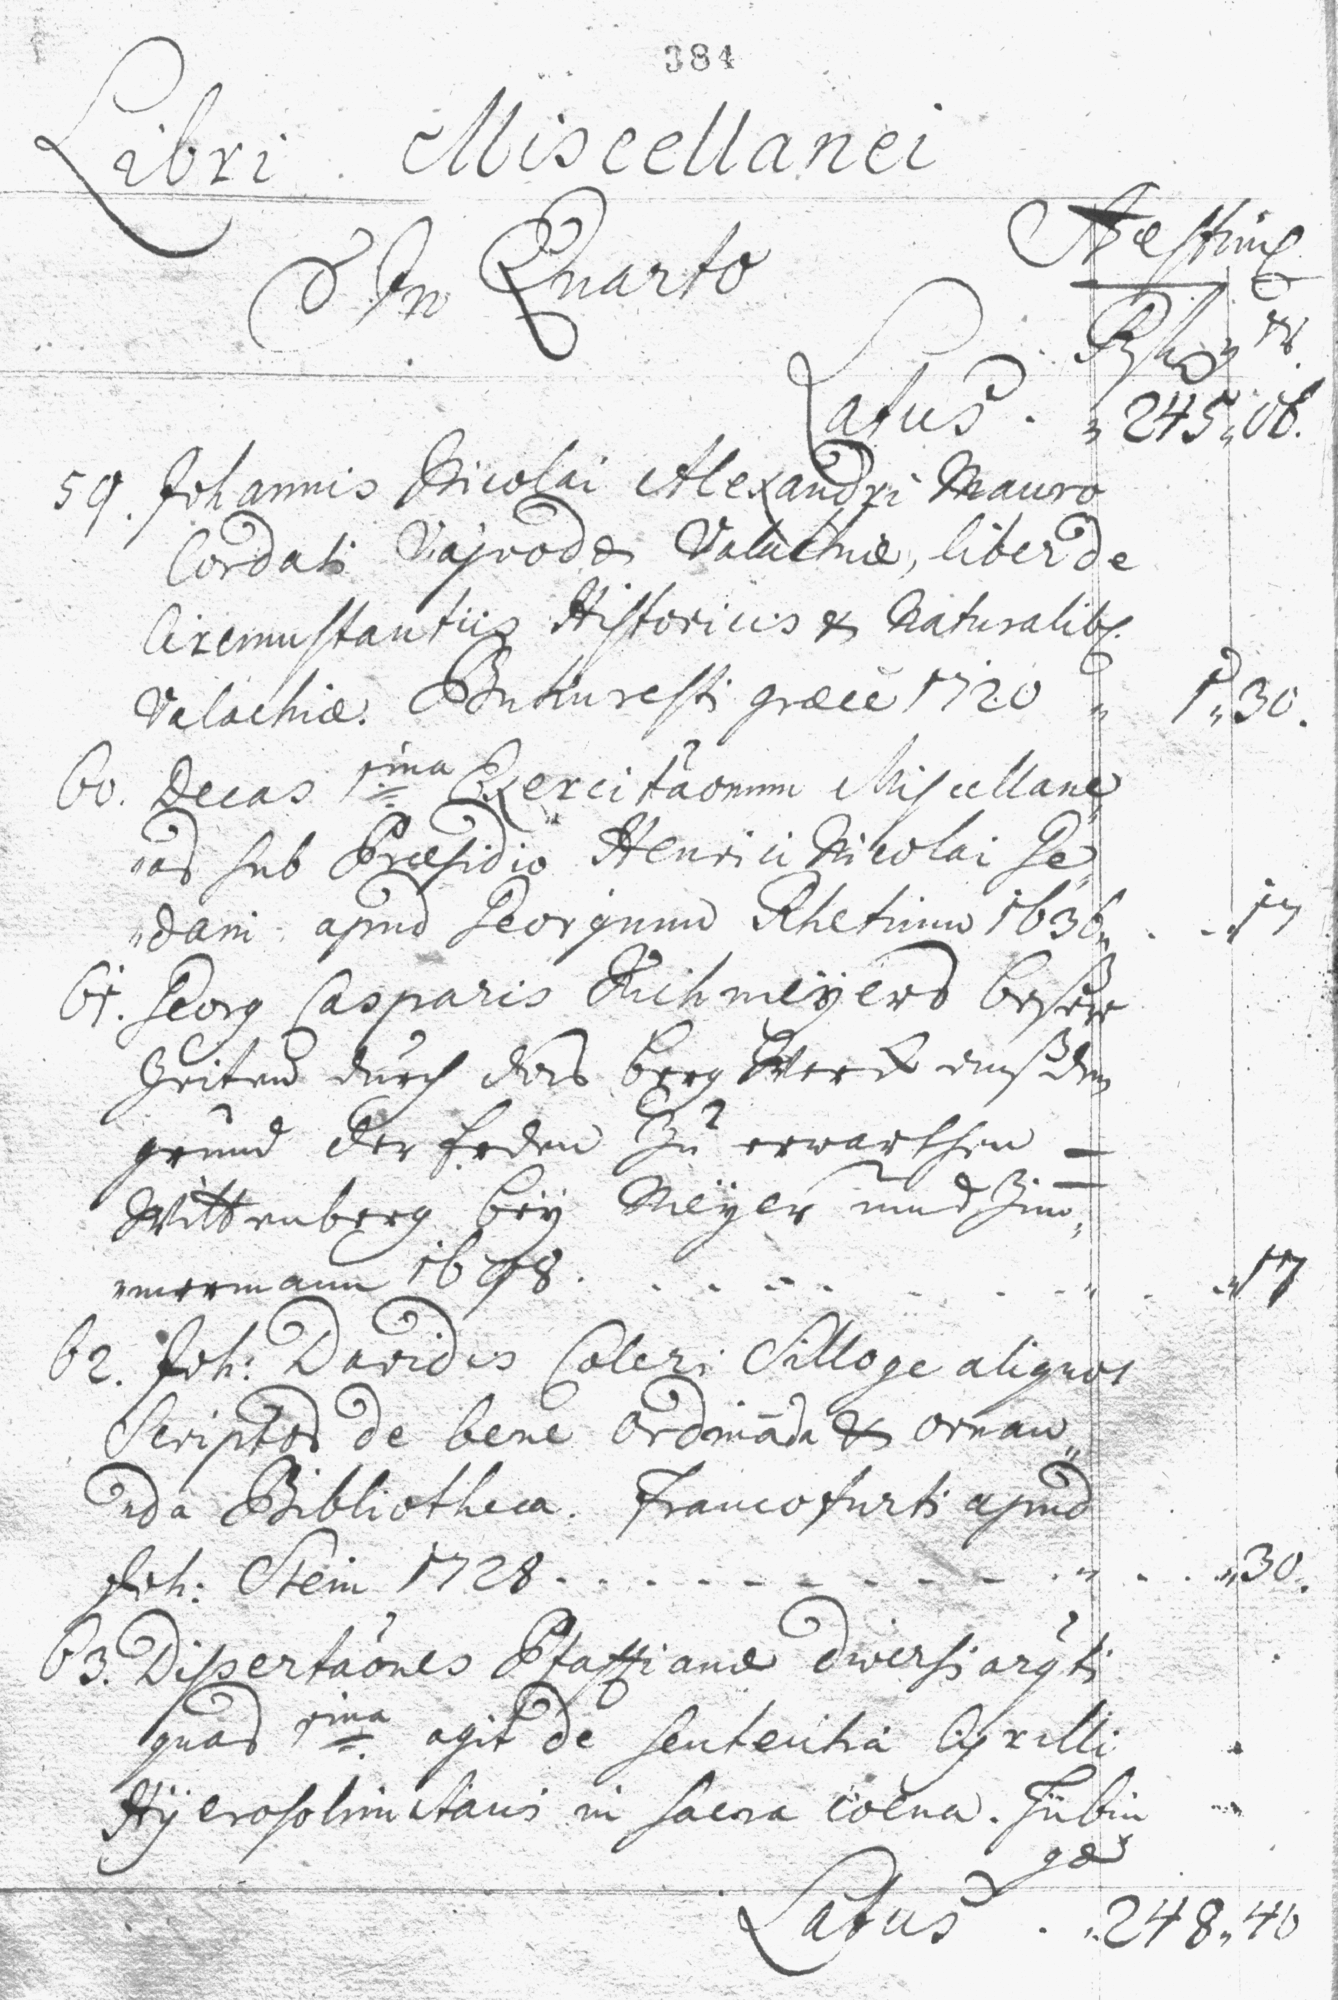 384
Libri Miscellanei
In Quarto
Æstim
Rh xr.
Latus . „ 245 „ 06.
59. Johannis Nicolai Alexandri Mauro
Cordati Vajvodæ Valachiæ, liber de
Circumstantiis Historicis & Naturalib9
Valachiæ. Bukuresti græcè 1720 „ 1 „ 30.
60. Decas 1ma Exercitãonum Miscellane„
„as sub Præsidio Henrici Nicolai Ge„
„dani apud Georgium Rhetium 1636 „ . . „ 17
61. Georg Casparis Kirhmeÿers beßere
Zeiten durch das berg Werck auß dem
grund der Erden Zu erwarthen =
Wittenberg beÿ Meÿer und Zim„
„mermann 1698 . . . . . „ . „ 17
62. Joh: Davidis Coleri Silloge aliquot
Scriptor de bene ordināda & ornan„
„da Bibliotheca. Francofurti apud
Joh: Stein 1728 . . . . . „ . . „ 30.
63. Dissertãones Pfaffianæ diversi argti
quas 1ma agit de sententia Cyrilli
Hÿerosolimitani in sacra coena. Tübin
gæ
Latus . „ 248 „ 40